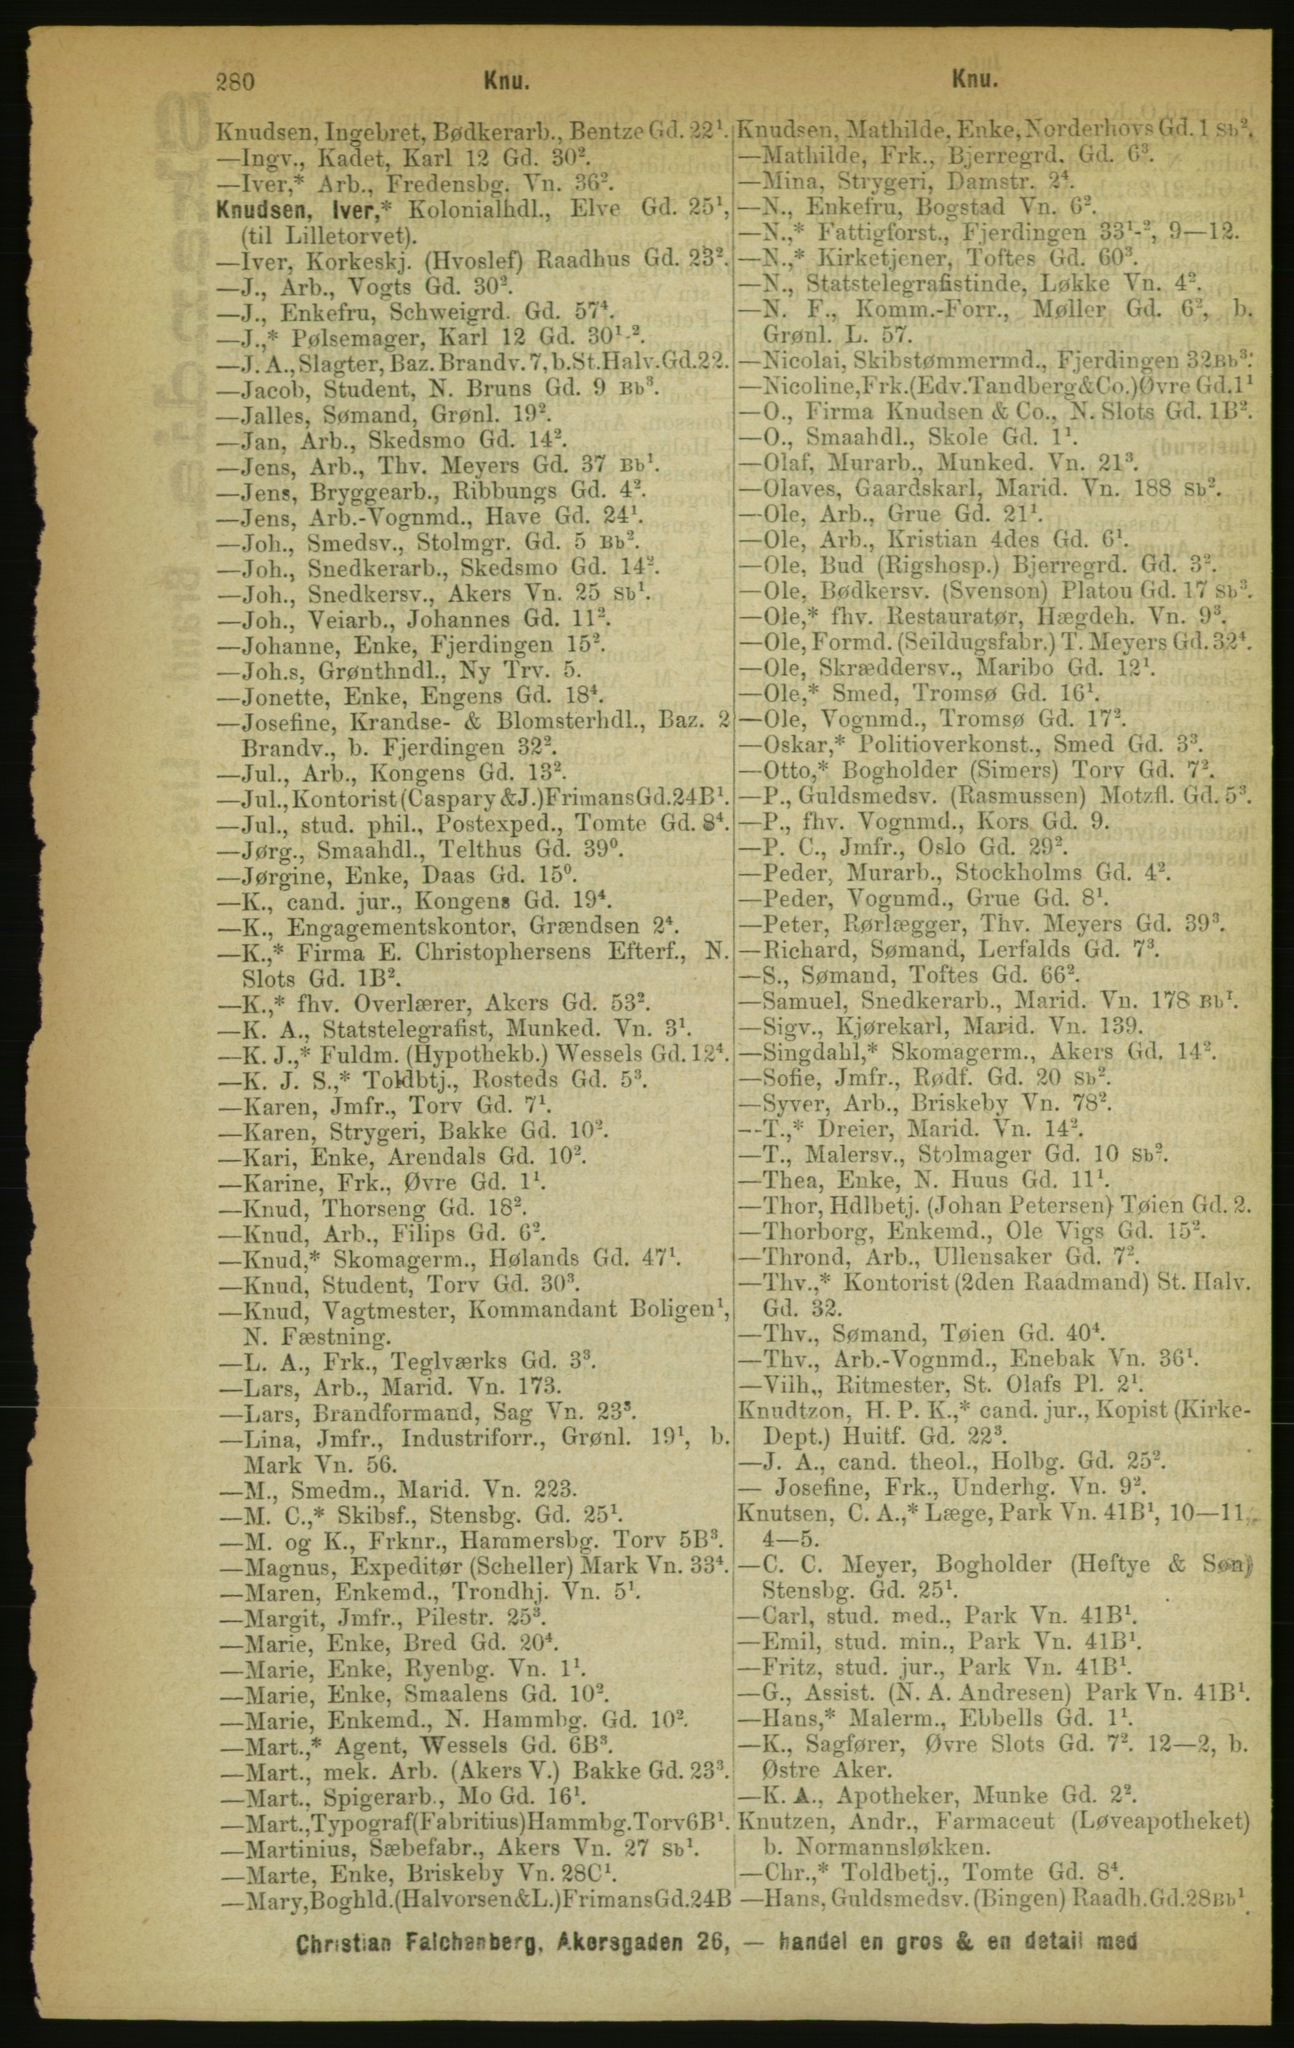 280 Knu. Knu.
Knudsen, Ingebret, Bødkerarb., Bentze Gd. 22¹.
—Ingv., Kadet, Karl 12 Gd. 30².
—Iver,* Arb., Fredensbg. Vn. 36².
Knudsen, Iver,* Kolonialhdl., Elve Gd. 25¹,
(til Lilletorvet).
—Iver, Korkeskj. (Hvoslef) Raadhus Gd. 23².
—J., Arb., Vogts Gd. 30².
—J., Enkefru, Schweigrd. Gd. 57⁴.
—J.,* Pølsemager, Karl 12 Gd. 30¹-².
—J. A., Slagter, Baz. Brandv. 7, b. St. Halv. Gd. 22.
—Jacob, Student, N. Bruns Gd. 9 Bb³.
—Jalles, Sømand, Grønl. 19².
—Jan, Arb., Skedsmo Gd. 14².
—Jens, Arb., Thv. Meyers Gd. 37 Bb¹.
—Jens, Bryggearb., Ribbungs Gd. 4².
—Jens, Arb.-Vognmd., Have Gd. 24¹.
—Joh., Smedsv., Stolmgr. Gd. 5 Bb².
—Joh., Snedkerarb., Skedsmo Gd. 14².
—Joh., Snedkersv., Akers Vn. 25 Sb¹.
—Joh., Veiarb., Johannes Gd. 11².
—Johanne, Enke, Fjerdingen 15².
—Joh.s, Grønthndl., Ny Trv. 5.
—Jonette, Enke, Engens Gd. 18⁴.
—Josefine, Krandse- & Blomsterhdl., Baz. 2
Brandv., b. Fjerdingen 32².
—Jul., Arb., Kongens Gd. 13².
—Jul., Kontorist (Caspary & J.) Frimans Gd. 24B¹.
—Jul., stud. phil., Postexped., Tomte Gd. 8⁴.
—Jørg., Smaahdl., Telthus Gd. 39⁰.
—Jørgine, Enke, Daas Gd. 15⁰.
—K., cand. jur., Kongens Gd. 19⁴.
—K., Engagementskontor, Grændsen 2⁴.
—K.,* Firma E. Christophersens Efterf., N.
Slots Gd. 1B².
—K.,* fhv. Overlærer, Akers Gd. 53².
—K. A., Statstelegrafist, Munked. Vn. 3¹.
—K. J.,* Fuldm. (Hypothekb.) Wessels Gd. 12⁴.
—K. J. S.,* Toldbtj., Rosteds Gd. 5³.
—Karen, Jmfr., Torv Gd. 7¹.
—Karen, Strygeri, Bakke Gd. 10².
—Kari, Enke, Arendals Gd. 10².
—Karine, Frk., Øvre Gd. 1¹.
—Knud, Thorseng Gd. 18².
—Knud, Arb., Filips Gd. 6².
—Knud,* Skomagerm., Hølands Gd. 47¹.
—Knud, Student, Torv Gd. 30³.
—Knud, Vagtmester, Kommandant Boligen¹,
N. Fæstning.
—L. A., Frk., Teglværks Gd. 3³.
—Lars, Arb., Marid. Vn. 173.
—Lars, Brandformand, Sag Vn. 23³.
—Lina, Jmfr., Industriforr., Grønl. 19¹, b.
Mark Vn. 56.
—M., Smedm., Marid. Vn. 223.
—M. C.,* Skibsf., Stensbg. Gd. 25¹.
—M. og K., Frknr., Hammersbg. Torv 5B³.
—Magnus, Expeditør (Scheller) Mark Vn. 33⁴.
—Maren, Enkemd., Trondhj. Vn. 5¹.
—Margit, Jmfr., Pilestr. 25³.
—Marie, Enke, Bred Gd. 20⁴.
—Marie, Enke, Ryenbg. Vn. 1¹.
—Marie, Enke, Smaalens Gd. 10².
—Marie, Enkemd., N. Hammbg. Gd. 10².
—Mart.,* Agent, Wessels Gd. 6B³.
—Mart., mek. Arb. (Akers V.) Bakke Gd. 23³.
—Mart., Spigerarb., Mo Gd. 16¹.
—Mart., Typograf (Fabritius) Hammbg. Torv 6B¹.
—Martinius, Sæbefabr., Akers Vn. 27 Sb¹.
—Marte, Enke, Briskeby Vn. 28C¹.
—Mary, Boghld. (Halvorsen & L.) Frimans Gd. 24B
Knudsen, Mathilde, Enke, Norderhovs Gd. 1 Sb².
—Mathilde, Frk., Bjerregrd. Gd. 6³.
—Mina, Strygeri, Damstr. 2⁴.
—N., Enkefru, Bogstad Vn. 6².
—N.,* Fattigforst., Fjerdingen 33¹-², 9—12.
—N.,* Kirketjener, Toftes Gd. 60³.
—N., Statstelegrafistinde, Løkke Vn. 4².
—N. F., Komm.-Forr., Møller Gd. 6², b.
Grønl. L. 57.
—Nicolai, Skibstømmermd., Fjerdingen 32Bb³.
—Nicoline, Frk. (Edv. Tandberg & Co.) Øvre Gd. 1¹
—O., Firma Knudsen & Co., N. Slots Gd. 1B².
—O., Smaahdl., Skole Gd. 1¹.
—Olaf, Murarb., Munked. Vn. 21³.
—Olaves, Gaardskarl, Marid. Vn. 188 Sb².
—Ole, Arb., Grue Gd. 21¹.
—Ole, Arb., Kristian 4des Gd. 6¹.
—Ole, Bud (Rigshosp.) Bjerregrd. Gd. 3².
—Ole, Bødkersv. (Svenson) Platou Gd. 17 Sb³.
—Ole,* fhv. Restauratør, Hægdeh. Vn. 9³.
—Ole, Formd. (Seildugsfabr.) T. Meyers Gd. 32⁴.
—Ole, Skræddersv., Maribo Gd. 12¹.
—Ole,* Smed, Tromsø Gd. 16¹.
—Ole, Vognmd., Tromsø Gd. 17².
—Oskar,* Politioverkonst., Smed Gd. 3³.
—Otto,* Bogholder (Simers) Torv Gd. 7².
—P., Guldsmedsv. (Rasmussen) Motzfl. Gd. 5³.
—P., fhv. Vognmd., Kors Gd. 9.
—P. C., Jmfr., Oslo Gd. 29².
—Peder, Murarb., Stockholms Gd. 4².
—Peder, Vognmd., Grue Gd. 8¹.
—Peter, Rørlægger, Thv. Meyers Gd. 39³.
—Richard, Sømand, Lerfalds Gd. 7³.
—S., Sømand, Toftes Gd. 66².
—Samuel, Snedkerarb., Marid. Vn. 178 Bb¹.
—Sigv., Kjørekarl, Marid. Vn. 139.
—Singdahl,* Skomagerm., Akers Gd. 14².
—Sofie, Jmfr., Rødf. Gd. 20 Sb².
—Syver, Arb., Briskeby Vn. 78².
—T.,* Dreier, Marid. Vn. 14².
—T., Malersv., Stolmager Gd. 10 Sb².
—Thea, Enke, N. Huus Gd. 11¹.
—Thor, Hdlbetj. (Johan Petersen) Tøien Gd. 2.
—Thorborg, Enkemd., Ole Vigs Gd. 15².
—Thrond, Arb., Ullensaker Gd. 7².
—Thv.,* Kontorist (2den Raadmand) St. Halv.
Gd. 32.
—Thv., Sømand, Tøien Gd. 40⁴.
—Thv., Arb.-Vognmd., Enebak Vn. 36¹.
—Vilh., Ritmester, St. Olafs Pl. 2¹.
Knudtzon, H. P. K.,* cand. jur., Kopist (Kirke-
Dept.) Huitf. Gd. 22³.
—J. A., cand. theol., Holbg. Gd. 25².
— Josefine, Frk., Underhg. Vn. 9².
Knutsen, C. A.,* Læge, Park Vn. 41B¹, 10—11,
4—5.
—C. C. Meyer, Bogholder (Heftye & Søn)
Stensbg. Gd. 25¹.
—Carl, stud. med., Park Vn. 41B¹.
—Emil, stud. min., Park Vn. 41B¹.
—Fritz, stud. jur., Park Vn. 41B¹.
—G., Assist. (N. A. Andresen) Park Vn. 41B¹.
—Hans,* Malerm., Ebbells Gd. 1¹.
—K., Sagfører, Øvre Slots Gd. 7². 12—2, b.
Østre Aker.
—K. A., Apotheker, Munke Gd. 2².
Knutzen, Andr., Farmaceut (Løveapotheket)
b. Normannsløkken.
—Chr.,* Toldbetj., Tomte Gd. 8⁴.
—Hans, Guldsmedsv. (Bingen) Raadh. Gd. 28Bb¹
Christian Falchenberg, Akersgaden 26, — handel en gros & en detail med